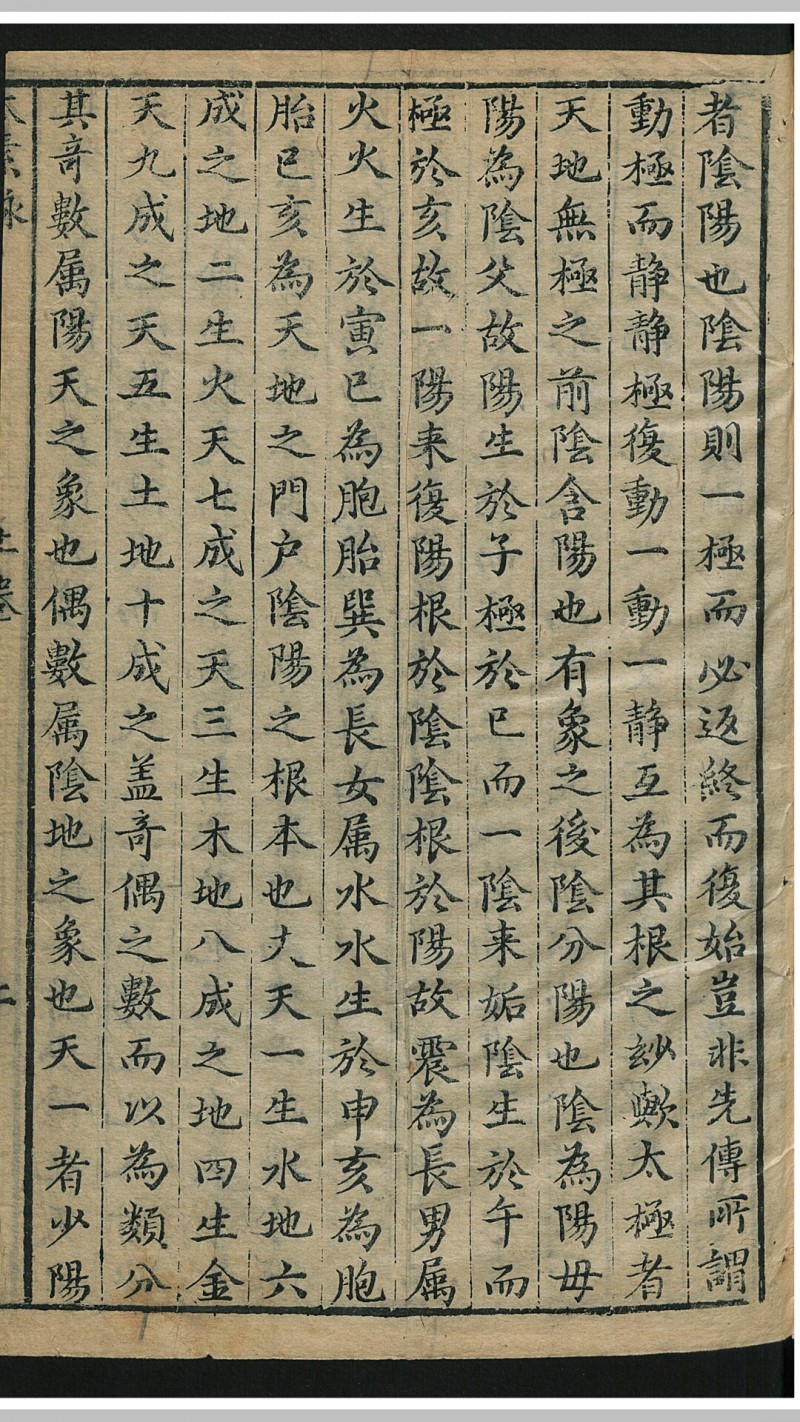 者陰陽也陰陽則一極而必返終而復始豈非先傳所謂
動極而静静極復動一動一静互為其根之玅歟太極者
天地無極之前陰含陽也有象之後陰分陽也陰為陽母
陽為陰父故陽生於子極於巳而一陰来姤陰生於午而
極於亥故一陽来復陽根於陰陰根於陽故震為長男属
火火生於寅巳為胞胎巽為長女属水水生於申亥為胞
胎巳亥為天地之門户陰陽之根本也夫天一生水地六
成之地二生火天七成之天三生木地八成之地四生金
天九成之天五生土地十成之盖奇偶之數而以為類分
其奇數属陽天之象也偶數属陰地之象也天一者少陽